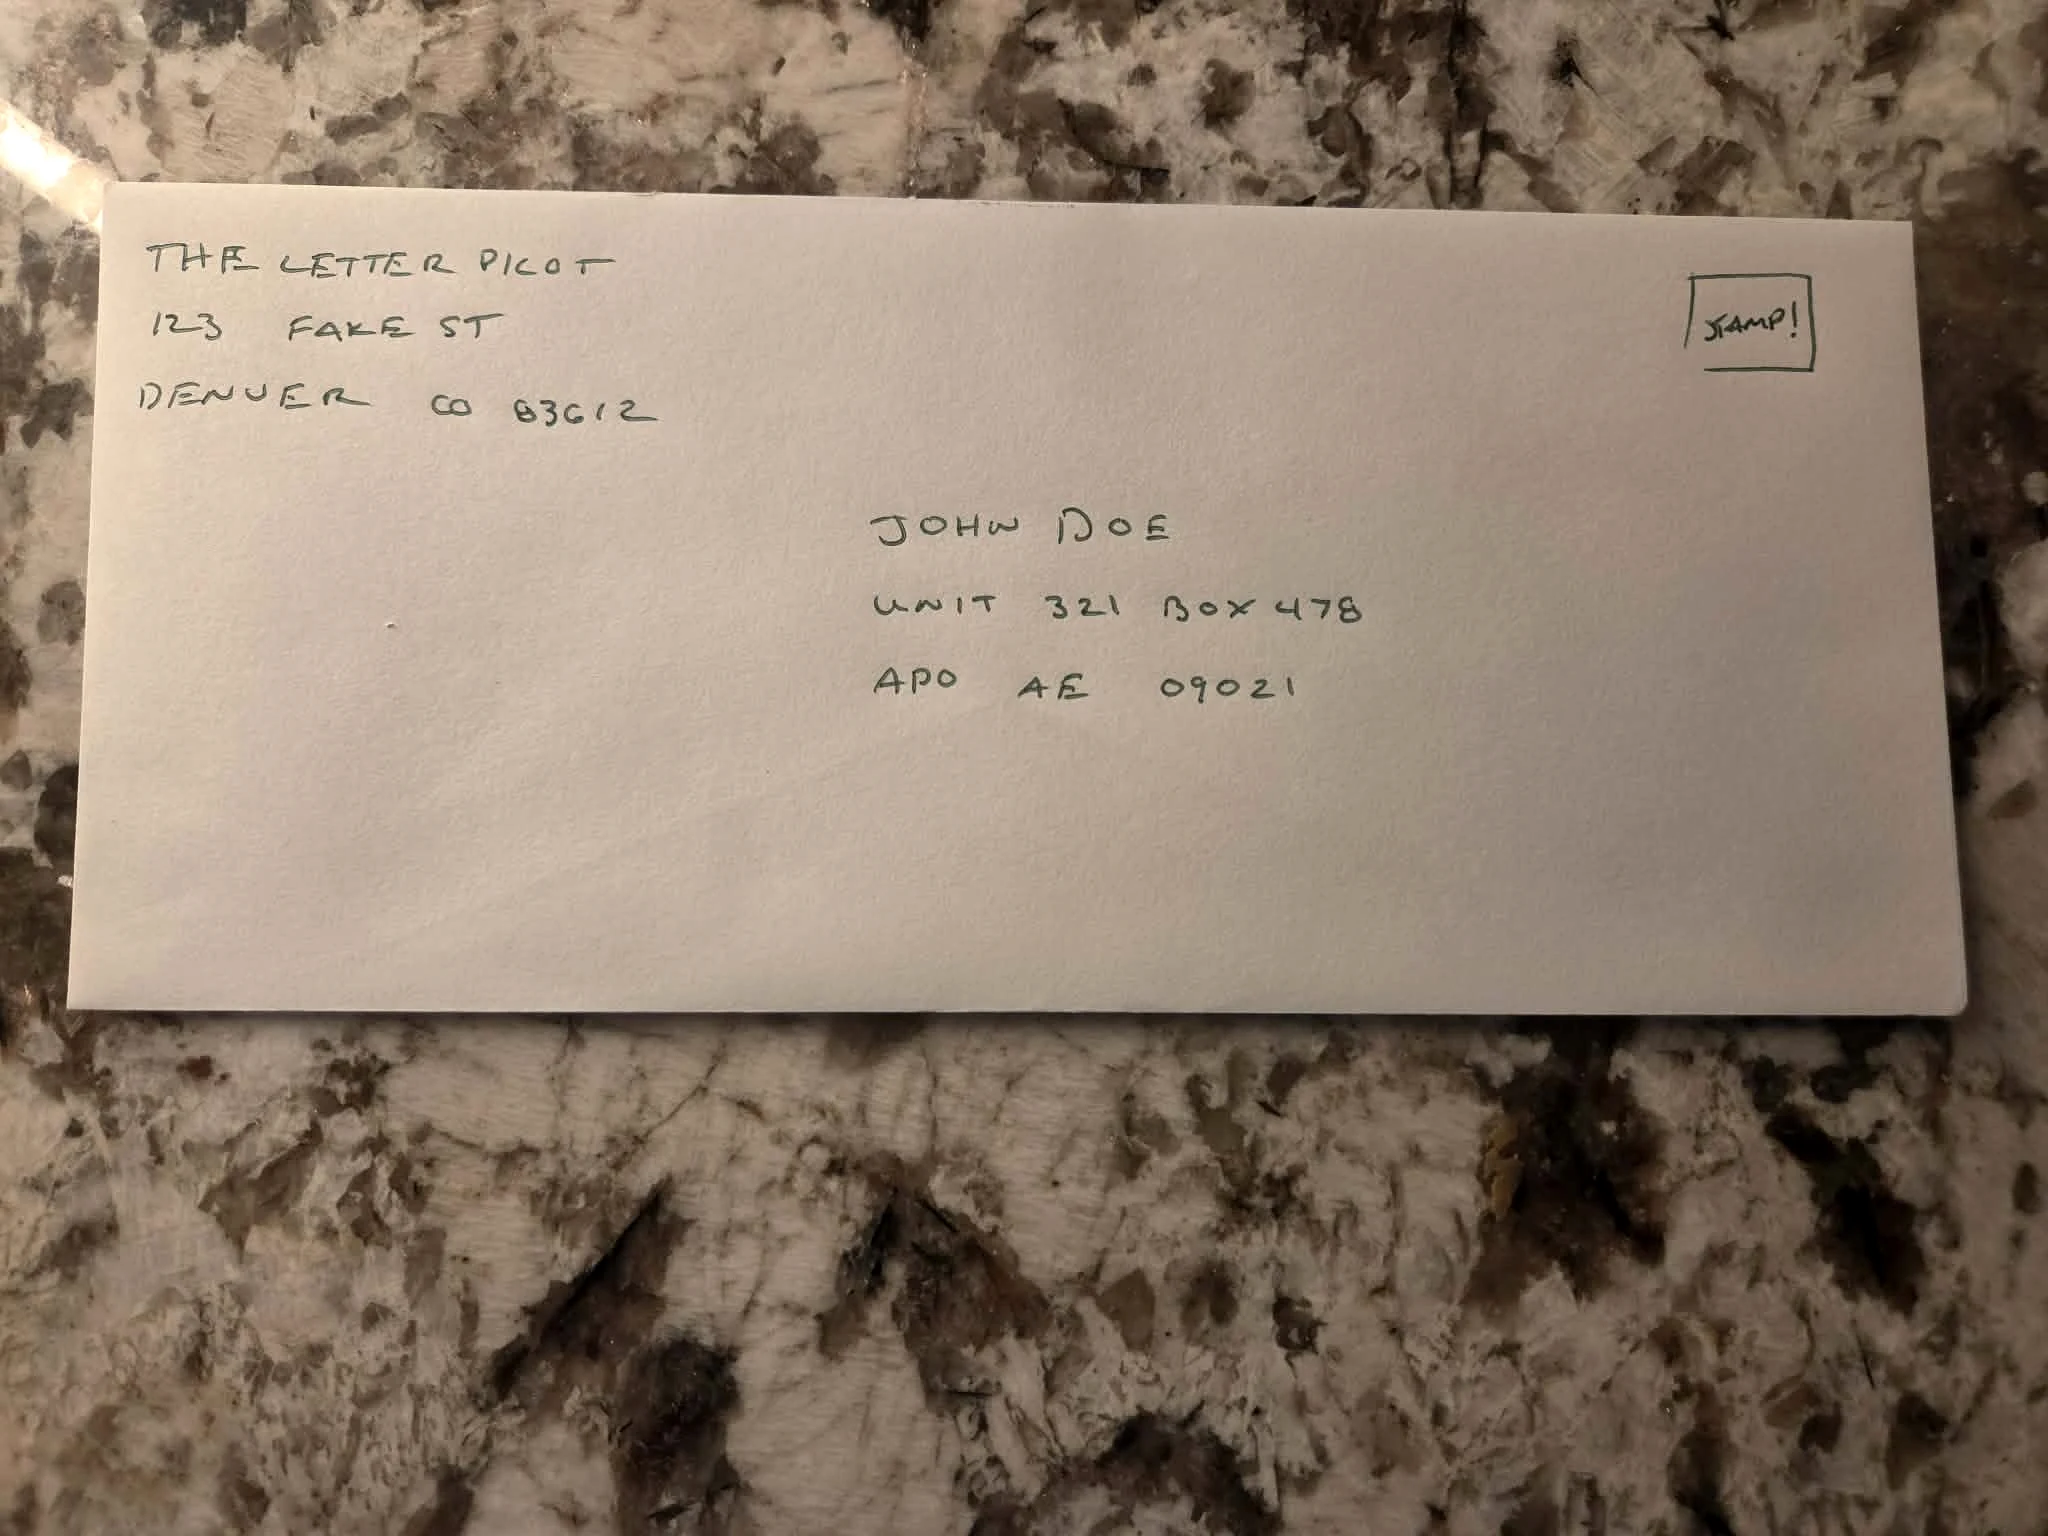 THE LETTER PILOT
123 FAKE ST
DENVER CO 83612
STAMP!
JOHN DOE
UNIT 321 BOX 478
APO AE 09021